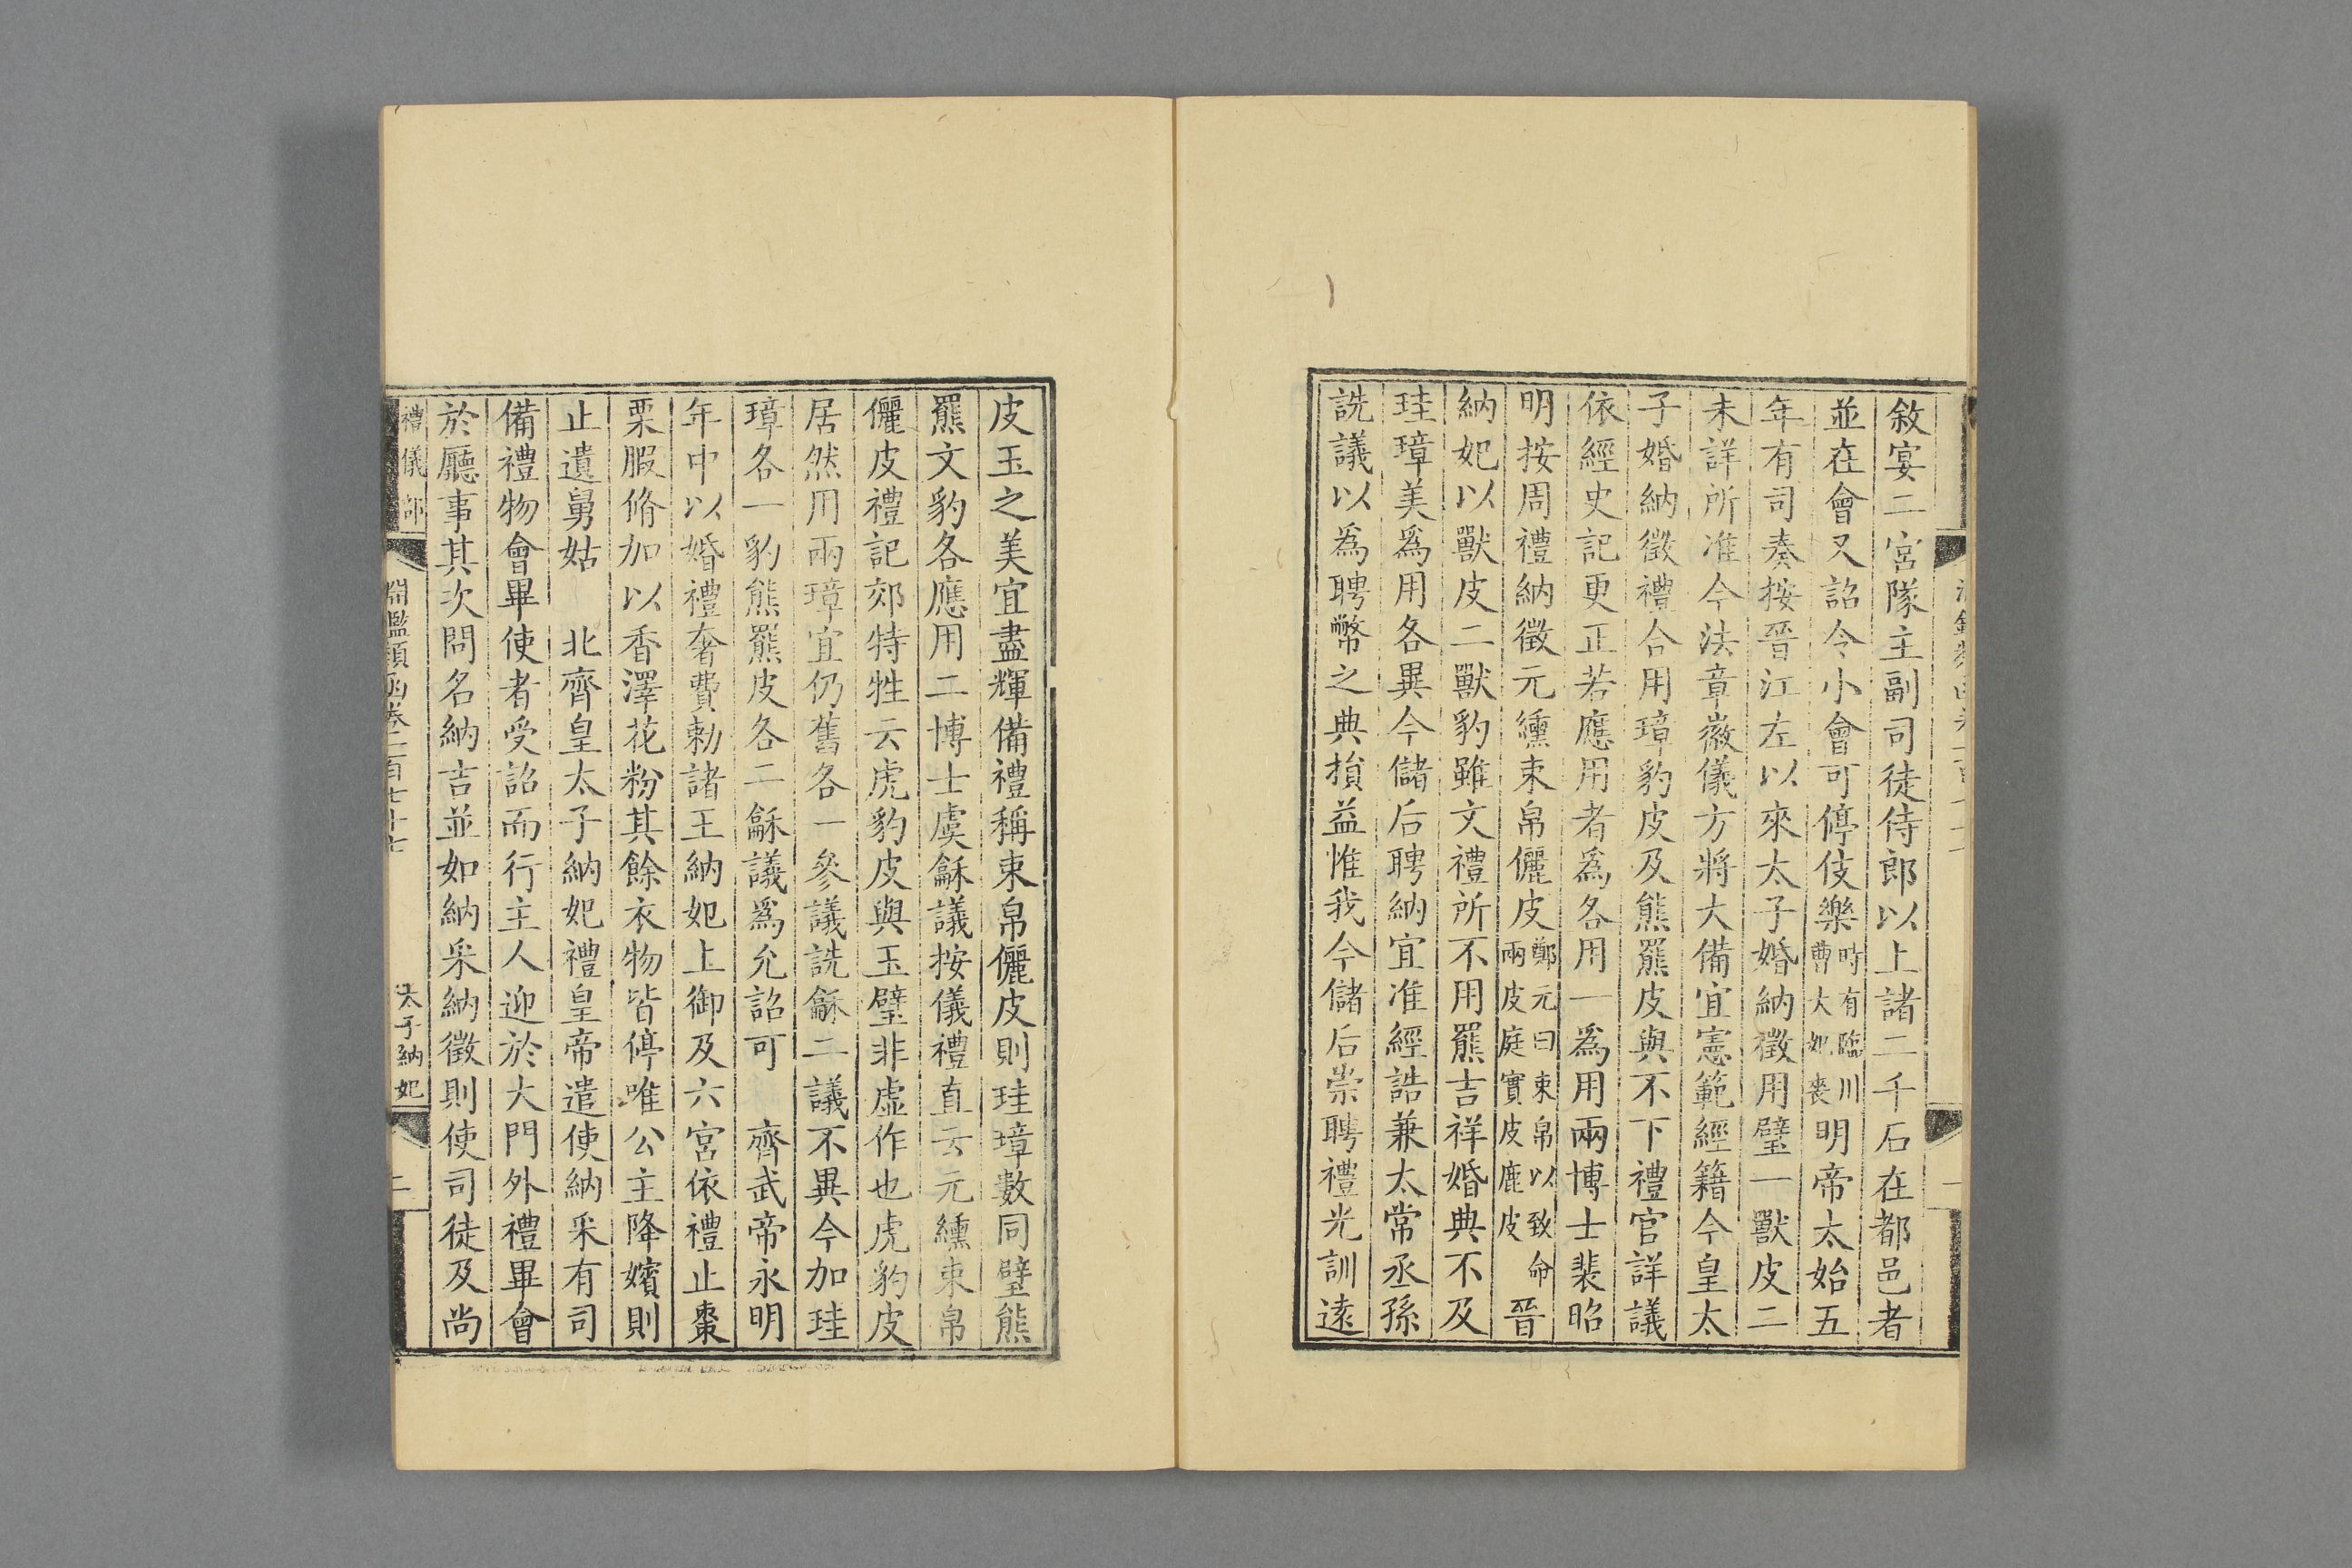 敘宴二宮隊主副司徒侍郎以上諸二千石在都邑者
並在會又詔今小會可停伎樂時有臨川曹大妃喪明帝太始五
年有司奏按晉江左以來太子婚納徵用璧一獸皮二
未詳所准今法章徽儀方將大備宜憲範經籍今皇太
子婚納徵禮合用璋豹皮及熊羆皮與不下禮官詳議
依經史記更正若應用者爲各用一爲用兩博士裴昭
明按周禮納徵元纁束帛儷皮鄭元曰束帛以致命兩皮庭實皮鹿皮晉
納妃以獸皮二獸豹雖文禮所不用羆吉祥婚典不及
珪璋美爲用各異今儲后聘納宜准經誥兼太常丞孫
詵議以爲聘幣之典損益惟我今儲后崇聘禮光訓遠
皮玉之美宜盡輝備禮稱束帛儷皮則珪璋數同璧熊
羆文豹各應用二博士虞龢議按儀禮直云元纁束帛
儷皮禮記郊特牲云虎豹皮與玉璧非虛作也虎豹皮
居然用兩璋宜仍舊各一參議詵龢二議不異今加珪
璋各一豹熊羆皮各二龢議爲允詔可 齊武帝永明
年中以婚禮奢費勅諸王納妃上御及六宮依禮止棗
栗腶脩加以香澤花粉其餘衣物皆停唯公主降嬪則
止遺舅姑 北齊皇太子納妃禮皇帝遣使納采有司
備禮物會畢使者受詔而行主人迎於大門外禮畢會
於廳事其次問名納吉並如納采納徵則使司徒及尚
禮儀部 淵鑑類函卷二百七十七 太子納妃 二